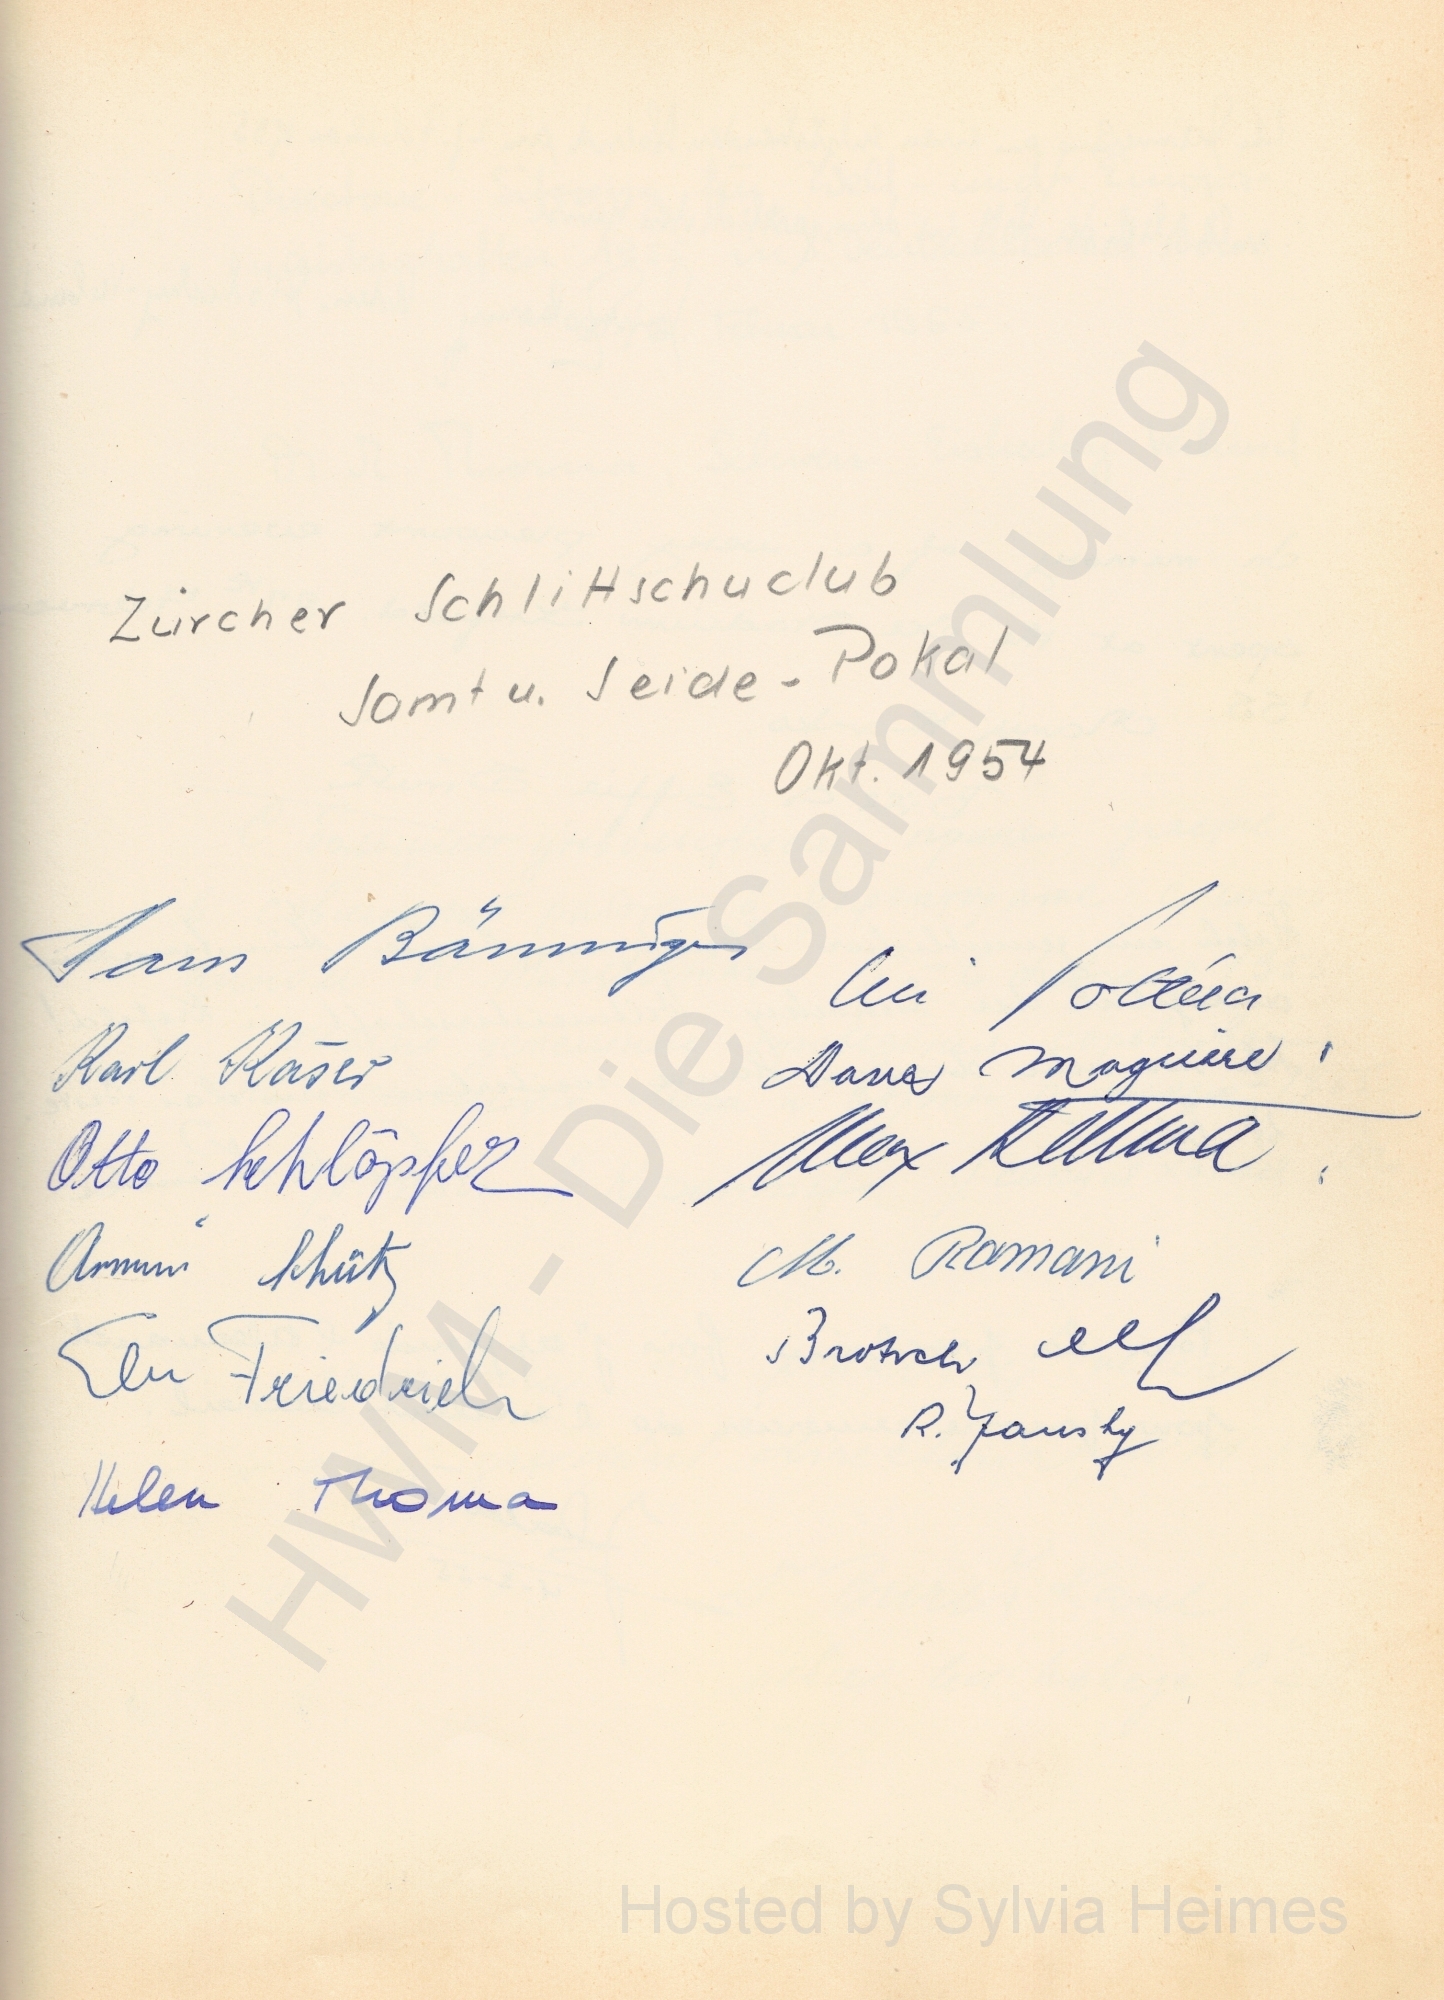 Zürcher Schlittschuclub
Samt u. Seide - Pokal
Okt. 1954
Hans Bänninger
Karl Käser
Otto Schlöpfer
Armin Schütz
Friedrich
Helen Thoma
Maguire
Max
M. Ramani
R. Jansky
HWM - Die Sammlung
Hosted by Sylvia Heimes